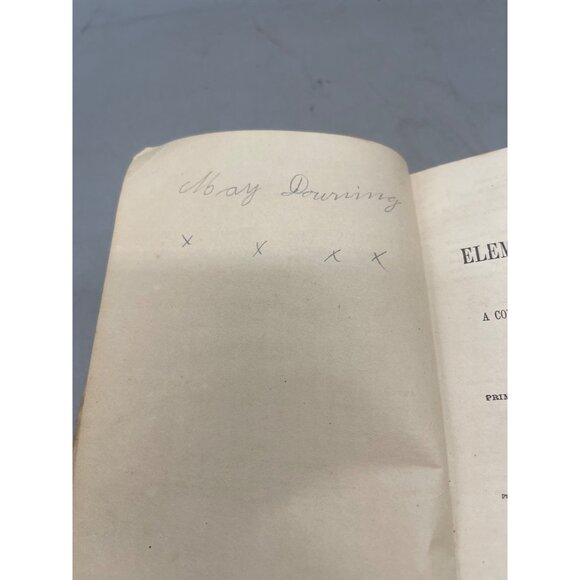 May Downing
x x x x
ELEM
A CO
PRIM
P